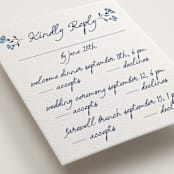 Kindly Reply
by june 28th.
welcome dinner september 11th, 6 pm
accepts declines
wedding ceremony september 12, 6 pm
accepts declines
farewell brunch september 13, 1 p
accepts